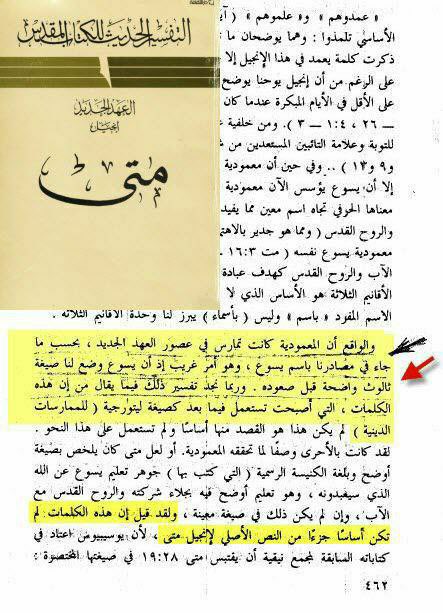 التفسير الحديث للكتاب المقدس
العهد الجديد
إنجيل
متى
« عمدوهم » و« علموهم »
الأساسي تلمذوا : وهما يوضحان ما
ذكرت كلمة يعمد في هذا الإنجيل إلا
على الرغم من أن إنجيل يوحنا يوضح
على الأقل في الأيام المبكرة عندما كان
— ٢٦ ، ٤:١ — ٣ ) . ومن خلفية
للتوبة وعلامة التائبين المستعدين من
و٩ و١٣ ) .. وفي حين أن معمودية
إلا أن يسوع يؤسس الآن معمودية
معناها الحرفي تجاه اسم معين مما يفيد
والروح القدس ( ومما هو جدير بالاهتمام
بمعمودية يسوع نفسه ( مت ٣:١٦
الآب والروح القدس كهدف عبادة
الأقانيم الثلاثة هو الأساس الذي لا
الاسم المفرد « باسم » وليس ( بأسماء ) يبرز لنا وحدة الأقانيم الثلاثة .
والواقع أن المعمودية كانت تمارس في عصور العهد الجديد ، بحسب ما
جاء في مصادرنا باسم يسوع ، وهو أمر غريب إذ أن يسوع وضع لنا صيغة
ثالوث واضحة قبل صعوده . وربما نجد تفسير ذلك فيما يقال من إن هذه
الكلمات ، التي أصبحت تستعمل فيما بعد كصيغة ليتورجية ( للممارسات
الدينية ) لم يكن هذا هو القصد منها أساسًا ولم تستعمل على هذا النحو .
لقد كانت بالأحرى وصفًا لما تحققه المعمودية . أو لعل متى كان يلخص بصيغة
أوضح وبلغة الكنيسة الرسمية ( التي كتب بها ) جوهر تعليم يسوع عن الله
الذي سيعبدونه ، وهو تعليم أوضح فيه بجلاء شركته والروح القدس مع
الآب ، وإن لم يكن ذلك في صيغة معينة ، ولقد قيل إن هذه الكلمات لم
تكن أساسًا جزءًا من النص الأصلي لإنجيل متى ، لأن يوسيبيوس اعتاد في
كتاباته السابقة لمجمع نيقية أن يقتبس متى ١٩:٢٨ في صيغتها المختصرة :
٤٦٢